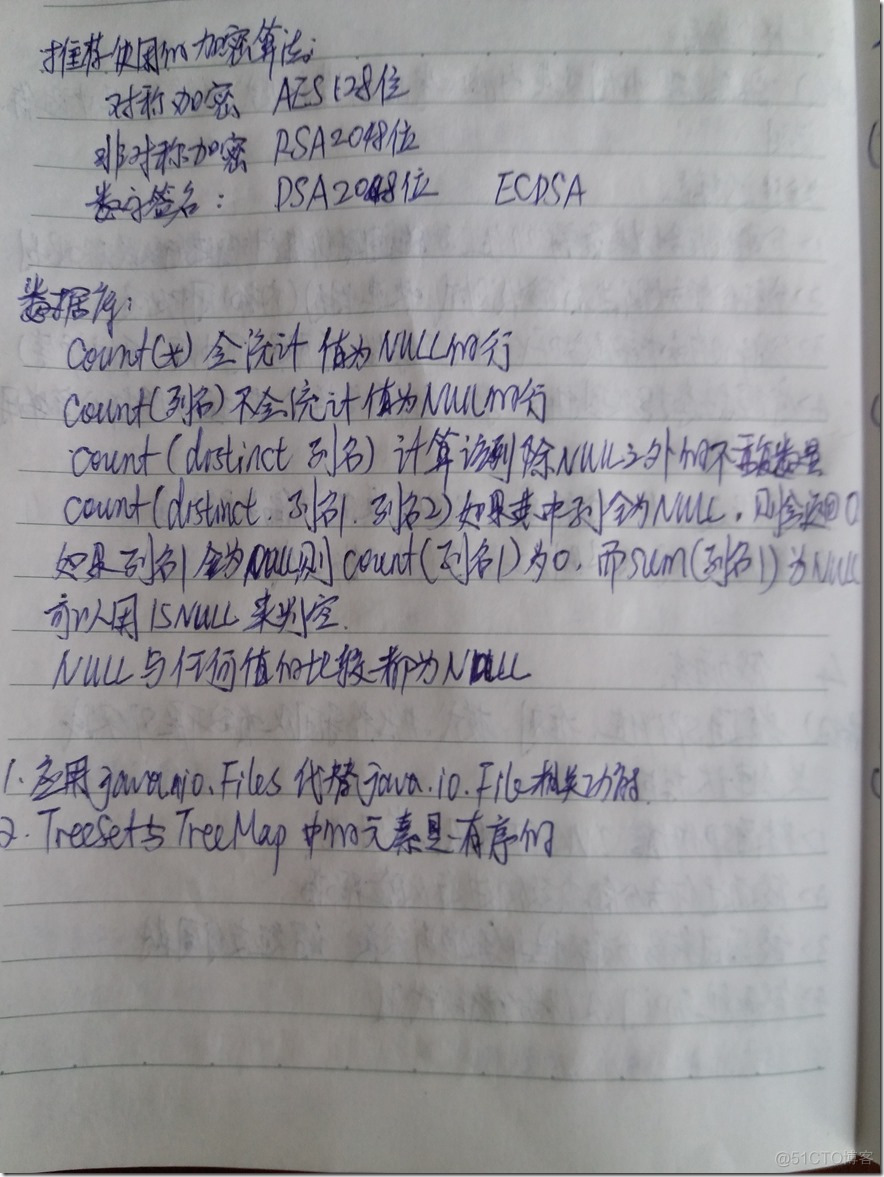 推荐使用的加密算法:
对称加密 AES 128位
非对称加密 RSA2048位
数字签名: DSA2048位 ECDSA
数据库:
Count(*) 会统计 值为NULL的行
Count(列名)不会统计值为NULL的行
count(distinct 列名) 计算该列除NULL之外的不重复数量
count(distinct. 列名1. 列名2)如果其中一列全为NULL,则会返回0
如果列名1全为NULL则 count(列名1)为0,而sum(列名1)为NULL
可以用ISNULL来判定.
NULL与任何值的比较都为NULL
1. 应用java.nio.Files 代替java.io.File相关功能.
2. TreeSet与TreeMap中的元素是有序的
@51CTO博客